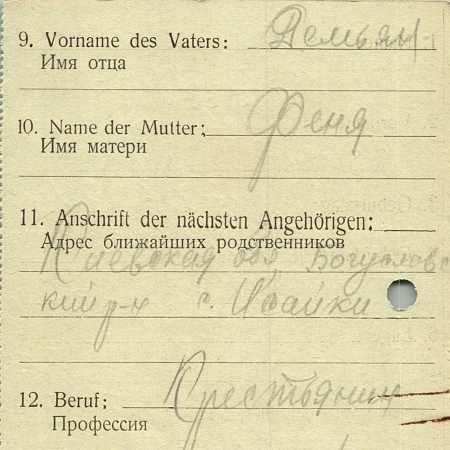 9. Vorname des Vaters: Демьян
Имя отца
10. Name der Mutter: Феня
Имя матери
11. Anschrift der nächsten Angehörigen:
Адрес ближайших родственников
Киевская обл Богуслов
ский р-н с. Исайки
12. Beruf: Крестьянин
Профессия